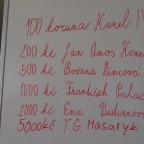 100 koruna Karel IV
200 kč Jan Amos Komen
500 kč Božena Němcová
1000 kč František Palac
2000 kč Ema Destinnová
5000kč T.G. Masaryk